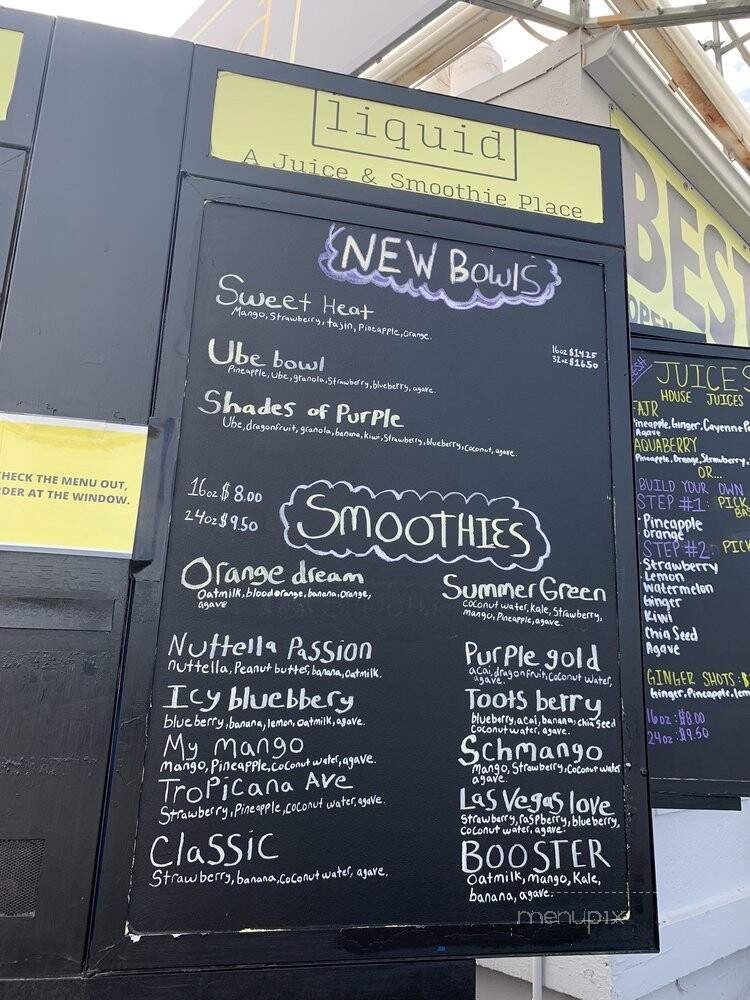 liquid
A Juice & Smoothie Place
NEW BOWLS
Sweet Heat
Mango, Strawberry, tajin, Pineapple, orange.
16oz $14.25
32oz $16.50
Ube bowl
Pineapple, Ube, granola, Strawberry, blueberry, agave.
Shades of Purple
Ube, dragonfruit, granola, banana, kiwi, Strawberry, blueberry, coconut, agave.
16oz $8.00
24oz $9.50
SMOOTHIES
Orange dream
Oatmilk, bloodorange, banana, orange,
agave
Nuttella Passion
nuttella, Peanut butter, banana, oatmilk.
Icy bluebbery
blueberry, banana, lemon, oatmilk, agave.
My mango
mango, Pineapple, coconut water, agave.
Tropicana Ave
Strawberry, Pineapple, coconut water, agave.
Classic
Strawberry, banana, coconut water, agave.
Summer Green
coconut water, kale, Strawberry,
mango, Pineapple, agave.
Purple gold
acai, dragonfruit, coconut water,
agave.
Toots berry
blueberry, acai, banana, chia seed
coconut water, agave.
Schmango
mango, Strawberry, coconut water
agave.
Las Vegas love
Strawberry, raspberry, blueberry,
coconut water, agave.
BOOSTER
Oatmilk, mango, Kale,
banana, agave.
CHECK THE MENU OUT,
ORDER AT THE WINDOW.
BEST
OPEN
JUICES
HOUSE JUICES
FAIR
Pineapple, Ginger, Cayenne
Agave
AQUABERRY
Pineapple, Orange, Strawberry,
OR...
BUILD YOUR OWN
STEP #1: PICK
BAS
Pineapple
orange
STEP #2: PICK
Strawberry
Lemon
Watermelon
Ginger
Kiwi
Chia Seed
Agave
GINGER SHOTS:
Ginger, Pineapple, lem
16oz: $8.00
24oz: $9.50
menupix